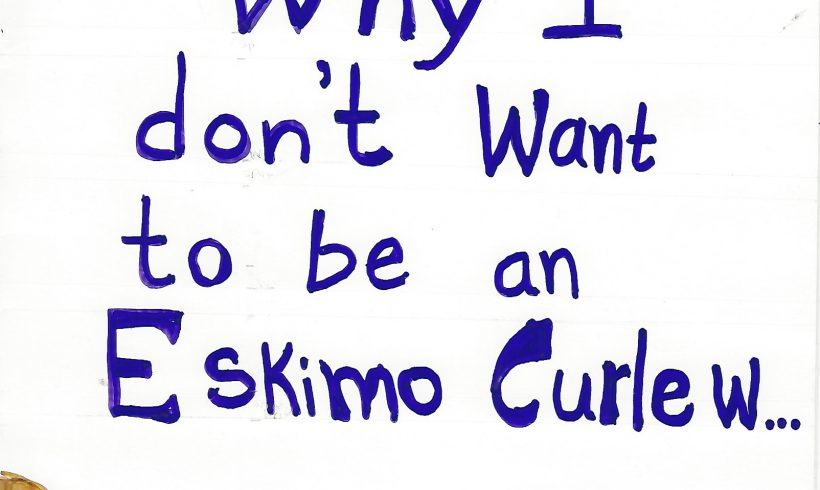 Why I
don't Want
to be an
Eskimo Curlew...